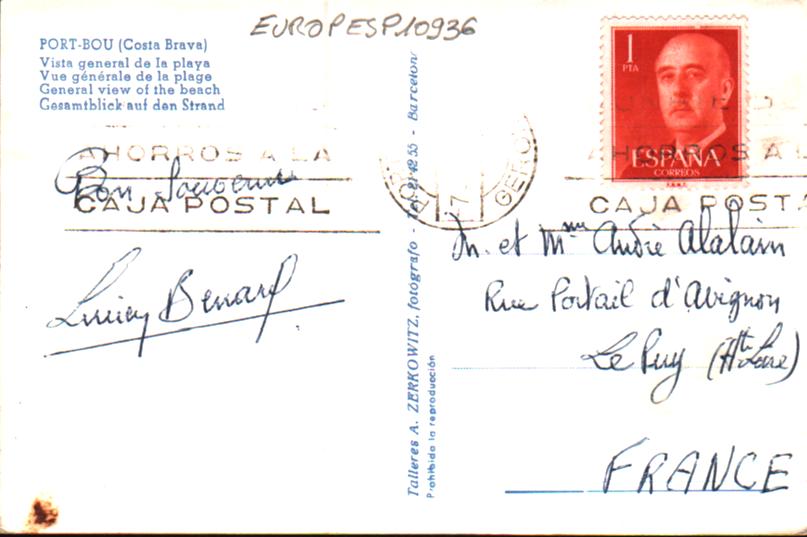 EUROPESP10936
PORT-BOU (Costa Brava)
Vista general de la playa
Vue générale de la plage
General view of the beach
Gesamtblick auf den Strand
1
PTA
ESPAÑA
CORREOS
F.N.M.T.
AHORROS A LA
CAJA POSTAL
GERO
AHORROS A L
CAJA POSTA
Bon Souvenir
Lucien Benard
Talleres A. ZERKOWITZ, fotógrafo - Barcelona
Prohibida la reproducción
M. et Mme André Alalain
Rue Portail d'Avignon
Le Puy (Hte Loire)
FRANCE